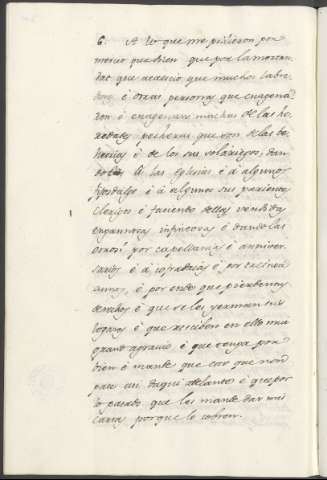 6. A lo que me pidieron por
merced que bien que por la mortan
dat que acaecio que muchos labra
dores é otras personas que enagena
ron é enagenan muchas de las he
redades pecheras que son de las be
hetrias é de los sus solariegos, dan
dolas á las Eglesias é á algunos
fijosdalgo é á algunos sus parientes
Clerigos é faciendo dellas vendidas
infintosas é dandolas
por capellanias é anniver
sarios é á cofradias é por
é por ende que pierden los
derechos é que se les yerman sus
logares é que reciben en ello muy
grand agravio é que tenga por
bien é mande que esto que non
pase asi daqui adelante é que por
lo pasado que les mande dar mi
carta porque lo cobren.